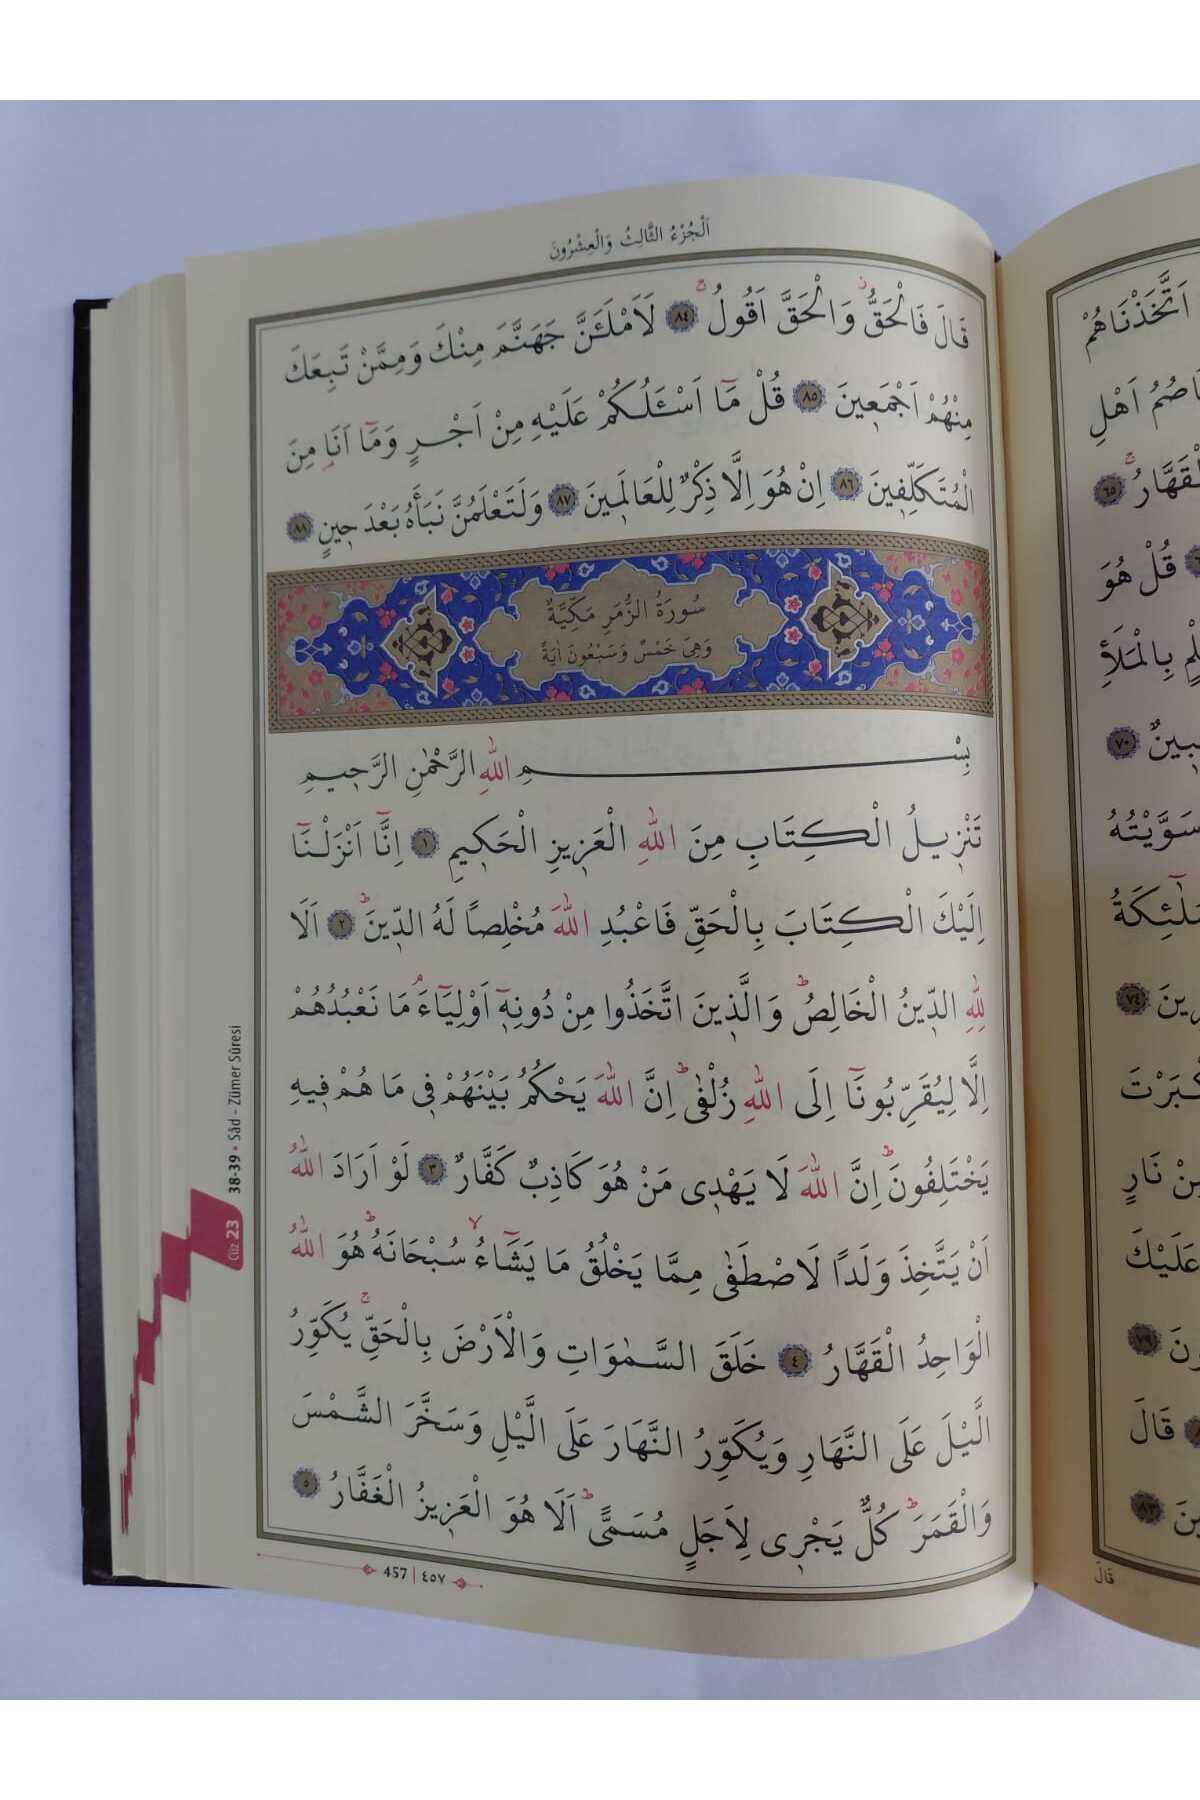 اَلْجُزْءُ الثَّالِثُ وَالْعِشْرُونَ
قَالَ فَالْحَقُّ وَالْحَقَّ اَقُولُ ٨٤ لَاَمْلَـَٔنَّ جَهَنَّمَ مِنْكَ وَمِمَّنْ تَبِعَكَ
مِنْهُمْ اَجْمَعٖينَ ٨٥ قُلْ مَٓا اَسْـَٔلُكُمْ عَلَيْهِ مِنْ اَجْرٍ وَمَٓا اَنَا۬ مِنَ
الْمُتَكَلِّفٖينَ ٨٦ اِنْ هُوَ اِلَّا ذِكْرٌ لِلْعَالَمٖينَ ٨٧ وَلَتَعْلَمُنَّ نَبَاَهُ بَعْدَ حٖينٍ ٨٨
سُورَةُ الزُّمَرِ مَكِّيَّةٌ
وَهِيَ خَمْسٌ وَسَبْعُونَ اٰيَةً
بِسْمِ اللّٰهِ الرَّحْمٰنِ الرَّحٖيمِ
تَنْزٖيلُ الْكِتَابِ مِنَ اللّٰهِ الْعَزٖيزِ الْحَكٖيمِ ١ اِنَّٓا اَنْزَلْنَٓا
اِلَيْكَ الْكِتَابَ بِالْحَقِّ فَاعْبُدِ اللّٰهَ مُخْلِصاً لَهُ الدّٖينَؕ ٢ اَلَا
لِلّٰهِ الدّٖينُ الْخَالِصُؕ وَالَّذٖينَ اتَّخَذُوا مِنْ دُونِهٖٓ اَوْلِيَٓاءَۘ مَا نَعْبُدُهُمْ
اِلَّا لِيُقَرِّبُونَٓا اِلَى اللّٰهِ زُلْفٰىؕ اِنَّ اللّٰهَ يَحْكُمُ بَيْنَهُمْ فٖي مَا هُمْ فٖيهِ
يَخْتَلِفُونَؕ اِنَّ اللّٰهَ لَا يَهْدٖي مَنْ هُوَ كَاذِبٌ كَفَّارٌ ٣ لَوْ اَرَادَ اللّٰهُ
اَنْ يَتَّخِذَ وَلَدًا لَاصْطَفٰى مِمَّا يَخْلُقُ مَا يَشَٓاءُۙ سُبْحَانَهُؕ هُوَ اللّٰهُ
الْوَاحِدُ الْقَهَّارُ ٤ خَلَقَ السَّمٰوَاتِ وَالْاَرْضَ بِالْحَقِّۚ يُكَوِّرُ
الَّيْلَ عَلَى النَّهَارِ وَيُكَوِّرُ النَّهَارَ عَلَى الَّيْلِ وَسَخَّرَ الشَّمْسَ
وَالْقَمَرَؕ كُلٌّ يَجْرٖي لِاَجَلٍ مُسَمًّىؕ اَلَا هُوَ الْعَزٖيزُ الْغَفَّارُ ٥
457 | ٤٥٧
Cüz 23
38-39 • Sâd - Zümer Sûresi
اَتَّخَذْنَاهُمْ
اَهْلِ
٦٥
قُلْ هُوَ
بِالْمَلَأِ
٧٠
سَوَّيْتُهُ
٧٤
نَارٍ
عَلَيْكَ
٧٩
قَالَ
٨٣
قَالَ